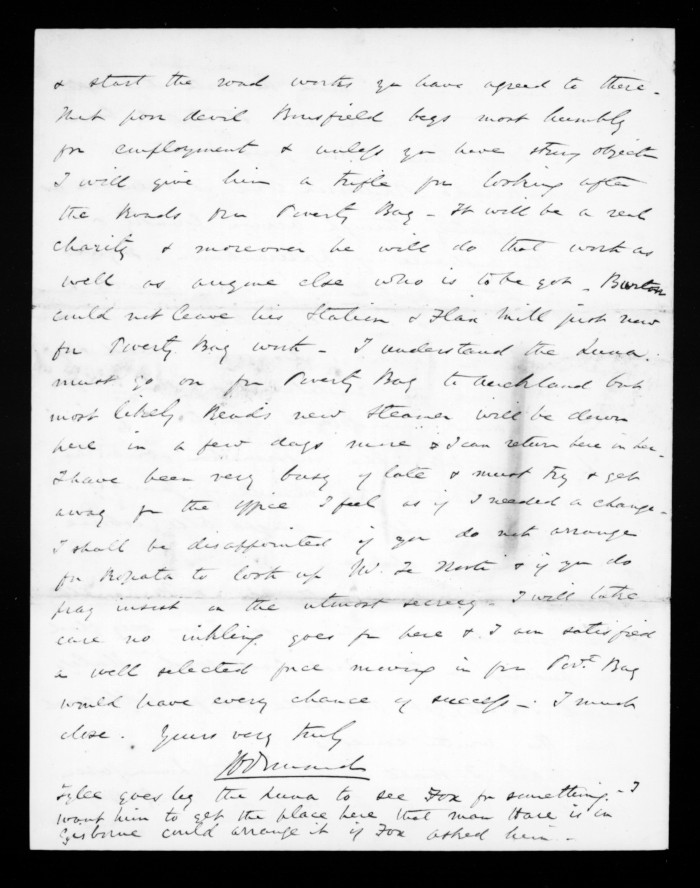 & start the road works you have agreed to there -
That poor devil Bousfield begs most humbly
for employment & unless you have strong object
I will give him a trifle for looking after
the Roads for Poverty Bay - It will be a real
charity & moreover he will do that work as
well as anyone else who is to be got - Burton
could not leave his Station & Flax Mill just now
for Poverty Bay work - I understand the Luna
must go on from Poverty Bay to Auckland but
most likely Reads new Steamer will be down
here in a few days more & I can return here in her -
I have been very busy of late & must try & get
away from the office I feel as if I needed a change -
I shall be disappointed if you do not arrange
for Ropata to look up Te & if you do
pray insist on the utmost secrecy - I will take
care no inkling goes from here & I am satisfied
a well selected force moving in from Povt. Bay
would have every chance of success - I must
close. Yours very truly
JDOrmond
Tylee goes by the Luna to see Fox for something - I
want him to get the place here that man Hare is in
Gisborne could arrange it if Fox asked him -